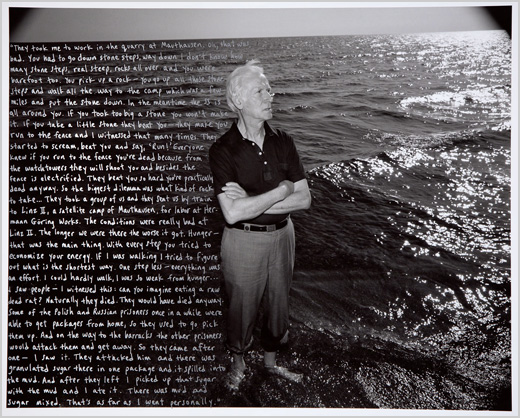 "They took me to work in the quarry at Mauthausen, oh, that was
bad. You had to go down stone steps, way down I don't know how
many stone steps, real steep, rocks all over and you were
barefoot too. You pick up a rock - you go up all those stone
steps and walk all the way to the camp which was a few
miles and put the stone down. In the meantime the SS is
all around you. If you took too big a stone you won't make
it. If you take a little stone they beat you - they make you
run to the fence and I witnessed that many times. They
started to scream, beat you and say, "Run!" Everyone
knew if you run to the fence you're dead because from
the watchtowers they will shoot you and besides the
fence is electrified. They beat you so hard you're practically
dead anyway. So the biggest dilemma was what kind of rock
to take... They took a group of us and they sent us by train
to Linz II, a satelite camp of Mauthausen, for labor at Her-
mann Göring Works. The conditions were really bad at
Linz II. The longer we were there the worse it got. Hunger -
that was the main thing. With every step you tried to
economize your energy. If I was walking I tried to figure
out what is the shortest way. One step less - everything was
an effort. I could hardly walk, I was so weak from hunger...
I saw people - I witnessed this: can you imagine eating a raw
dead rat? Naturally they died. They would have died anyway.
Some of the Polish and Russian prisoners once in a while were
able to get packages from home, so they used to go pick
them up. And on the way to the barracks the other prisoners
would attack them and get away. So they came after
one - I saw it. They attacked him and there was
granulated sugar there in one package and it spilled into
the mud. And after they left I picked up that sugar
with the mud and I ate it. There was mud and
sugar mixed. That's as far as I went personally."